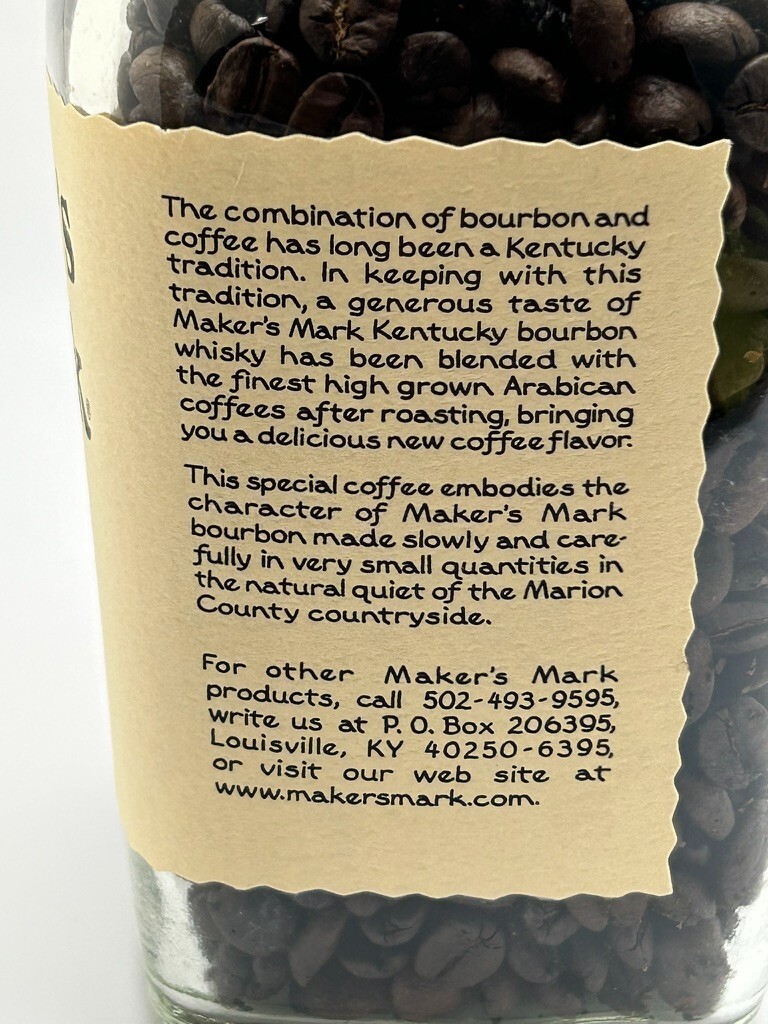 The combination of bourbon and
coffee has long been a Kentucky
tradition. In keeping with this
tradition, a generous taste of
Maker's Mark Kentucky bourbon
whisky has been blended with
the finest high grown Arabican
coffees after roasting, bringing
you a delicious new coffee flavor.
This special coffee embodies the
character of Maker's Mark
bourbon made slowly and care-
fully in very small quantities in
the natural quiet of the Marion
County countryside.
For other Maker's Mark
products, call 502-493-9595,
write us at P. O. Box 206395,
Louisville, KY 40250-6395,
or visit our web site at
www.makersmark.com.